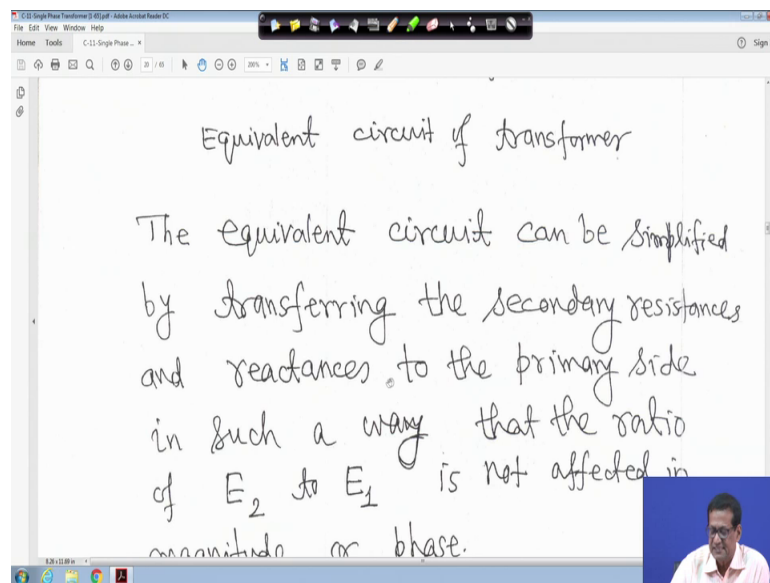 C-11-Single Phase Transformer [1-65].pdf - Adobe Acrobat Reader DC
File Edit View Window Help
Home Tools C-11-Single Phase ... ×
Sign
20 / 65 200%
Equivalent circuit of transformer
The equivalent circuit can be simplified
by transferring the secondary resistances
and reactances to the primary side
in such a way that the ratio
of E2 to E1 is not affected in
magnitude or phase.
8.26 x 11.69 in